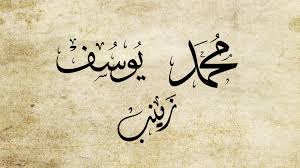 مُحَمَّد يُوسُف
زَينَب